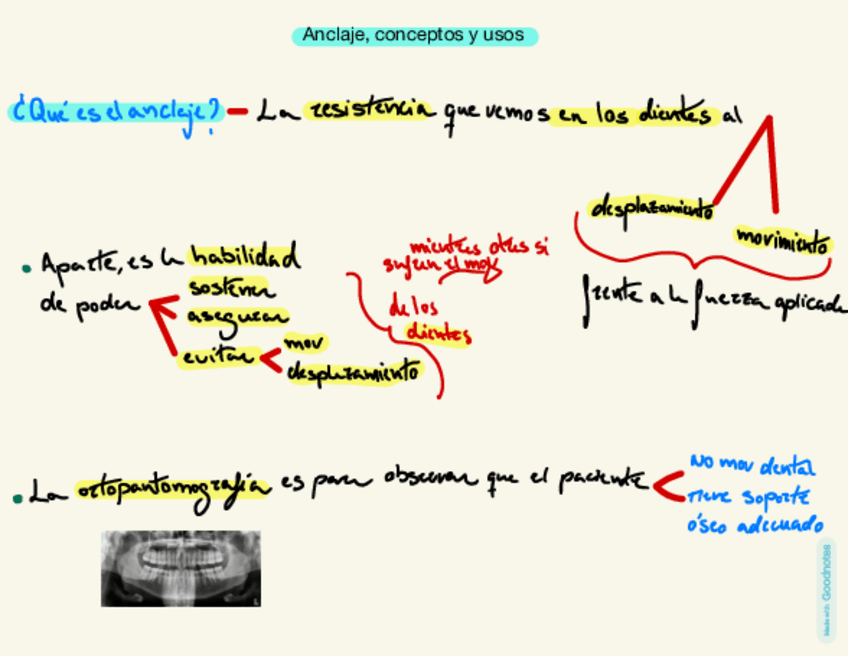 Anclaje, conceptos y usos
¿Qué es el anclaje? — La resistencia que vemos en los dientes al
desplazamiento
movimiento
frente a la fuerza aplicada
• Aparte, es la habilidad
de poder
sostener
asegurar
evitar
mov
desplazamiento
mientras otros si
sufren el mov
de los
dientes
• La ortopantomografía es para observar que el paciente
No mov dental
tiene soporte
óseo adecuado
Made with Goodnotes